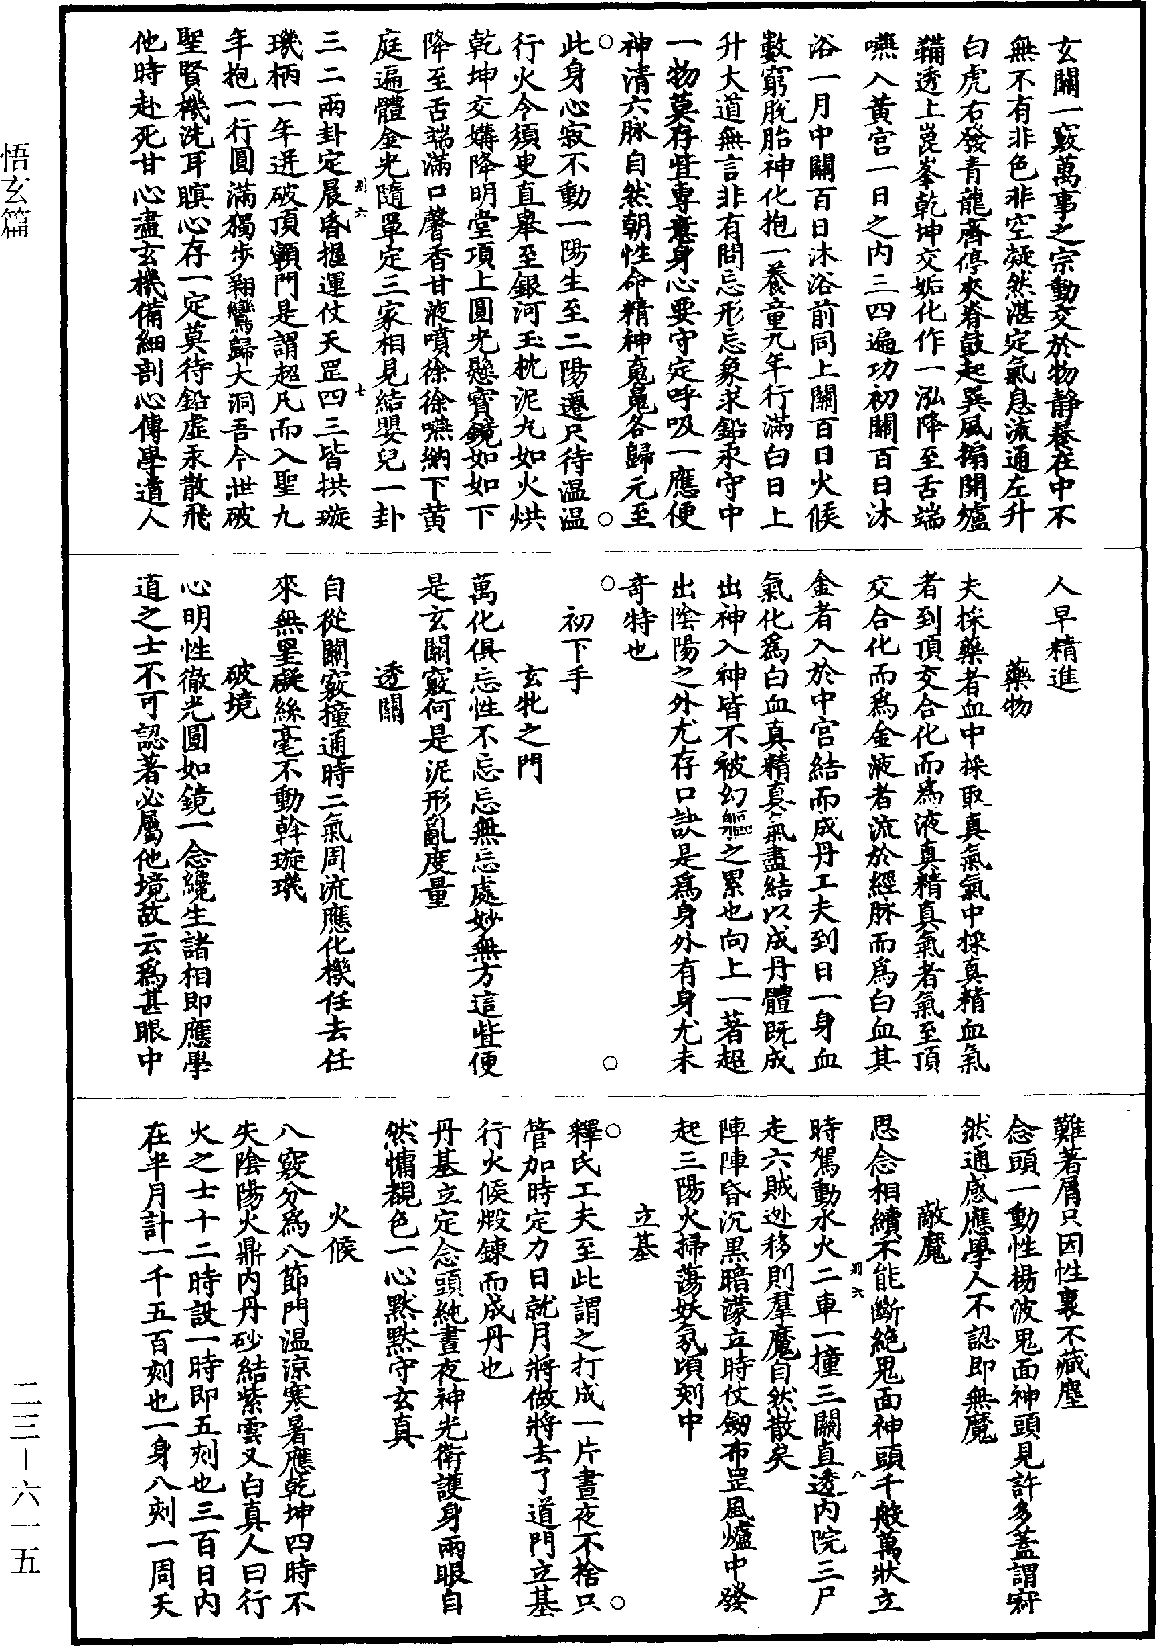 玄關一竅萬事之宗動交於物靜養在中不
無不有非色非空凝然湛定氣息流通左升
白虎右發青龍齊停夾脊鼓起巽風搧開爐
鞴透上崑峯乾坤交姤化作一泓降至舌端
嚥入黃宮一日之內三四遍功初關百日沐
浴一月中關百日沐浴前同上關百日火候
數窮脫胎神化抱一養童九年行滿白日上
升大道無言非有問忘形忘象求鉛汞守中
一物莫存些專意身心要守定呼吸一應便
神清六脉自然朝性命精神䰟魄各歸元至
此身心寂不動一陽生至二陽遷只待温温
行火今須臾直舉至銀河玉枕泥丸如火烘
乾坤交媾降明堂項上圓光懸寶鏡如如下
降至舌端滿口馨香甘液噴徐徐嚥納下黃
庭遍體金光隨罩定三家相見結嬰兒一卦
三二兩卦定晨昏摳運仗天罡四三皆拱璇
璣柄一年迸破頂顖門是謂超凡而入聖九
年抱一行圓滿獨步翔鸞歸大洞吾今泄破
聖賢機洗耳瞑心存一定莫待鉛虛汞散飛
他時赴死甘心盡玄機備細剖心傳學道人
人早精進
藥物
夫採藥者血中採取真氣氣中採真精血氣
者到頂交合化而為液真精真氣者氣至頂
交合化而為金液者流於經脉而為白血其
金者入於中宮結而成丹工夫到日一身血
氣化為白血真精真氣盡結以成丹體既成
出神入神皆不被幻軀之累也向上一著超
出陰陽之外尤存口訣是為身外有身尤未
奇特也
初下手
玄牝之門
萬化俱忘性不忘忘無忘處妙無方這些便
是玄關竅何是泥形亂度量
透關
自從關竅撞通時二氣周流應化機任去任
來無罣礙絲毫不動斡璇璣
破境
心明性徹光圓如鏡一念纔生諸相即應學
道之士不可認著必屬他境故云為甚眼中
難著屑只因性裏不藏塵
念頭一動性楊波鬼面神頭見許多蓋謂寂
然通感應學人不認即無魔
敵魔
思念相續不能斷絕鬼面神頭千般萬狀立
時駕動水火二車一撞三關直透內院三尸
走六賊迯移則羣魔自然散矣
陣陣昏沉黑暗濛立時仗劒布罡風爐中發
起三陽火掃蕩妖氛頃刻中
立基
釋氏工夫至此謂之打成一片晝夜不捨只
管加時定力日就月將做將去了道門立基
行火候煅鍊而成丹也
丹基立定念頭純晝夜神光衛護身兩眼自
然慵覩色一心默默守玄真
火候
八竅分為八節門温涼寒暑應乾坤四時不
失陰陽火鼎內丹砂結紫雲又白真人曰行
火之士十二時設一時即五刻也三百日內
在半月計一千五百刻也一身八刻一周天
悟玄篇
二三—六一五